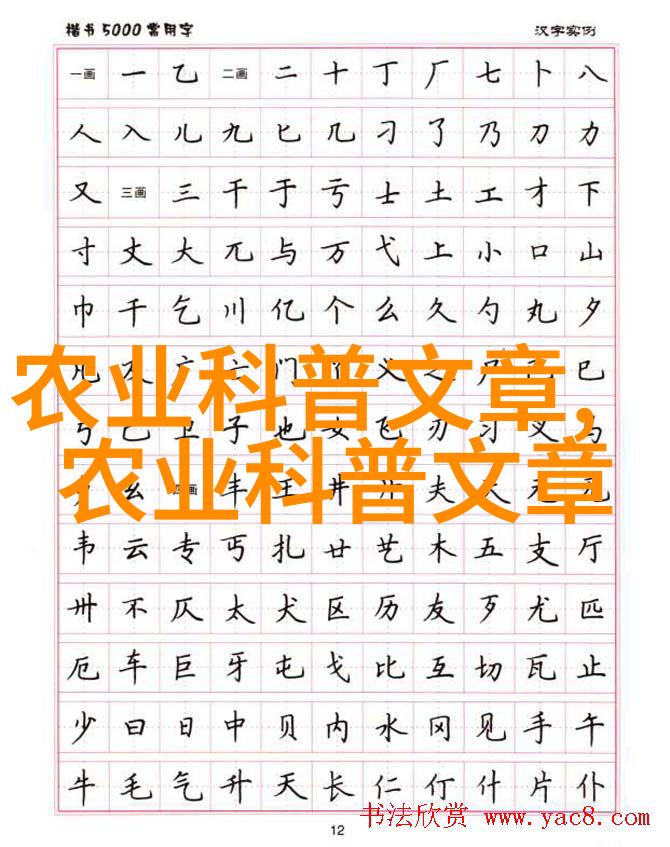 楷书5000常用字 汉字实例
一画 一 乙 二画 二 十 丁 厂 七 卜 八
人 入 儿 九 匕 几 刁 了 乃 刀 力
又 三画 三 干 于 亏 士 土 工 才 下
寸 丈 大 兀 与 万 弋 上 小 口 山
巾 千 乞 川 亿 个 么 久 勺 丸 夕
凡 及 广 亡 门 义 之 巳
农业科普文章,
弓 己 卫 子 也 女 飞 刃 习 叉 马
农业科普文章
乡 幺 四画 丰 王 井 开 夫 天 无
韦 云 专 丐 扎 廿 艺 木 五 支 厅
卅 不 仄 太 犬 区 历 友 歹 尤 匹
厄 车 巨 牙 屯 戈 比 互 切 瓦 止
少 曰 日 中 贝 内 水 冈 见 手 午
牛 毛 气 升 夭 长 仁 仃 什 片 仆
12
书法欣赏 www.yac8.com